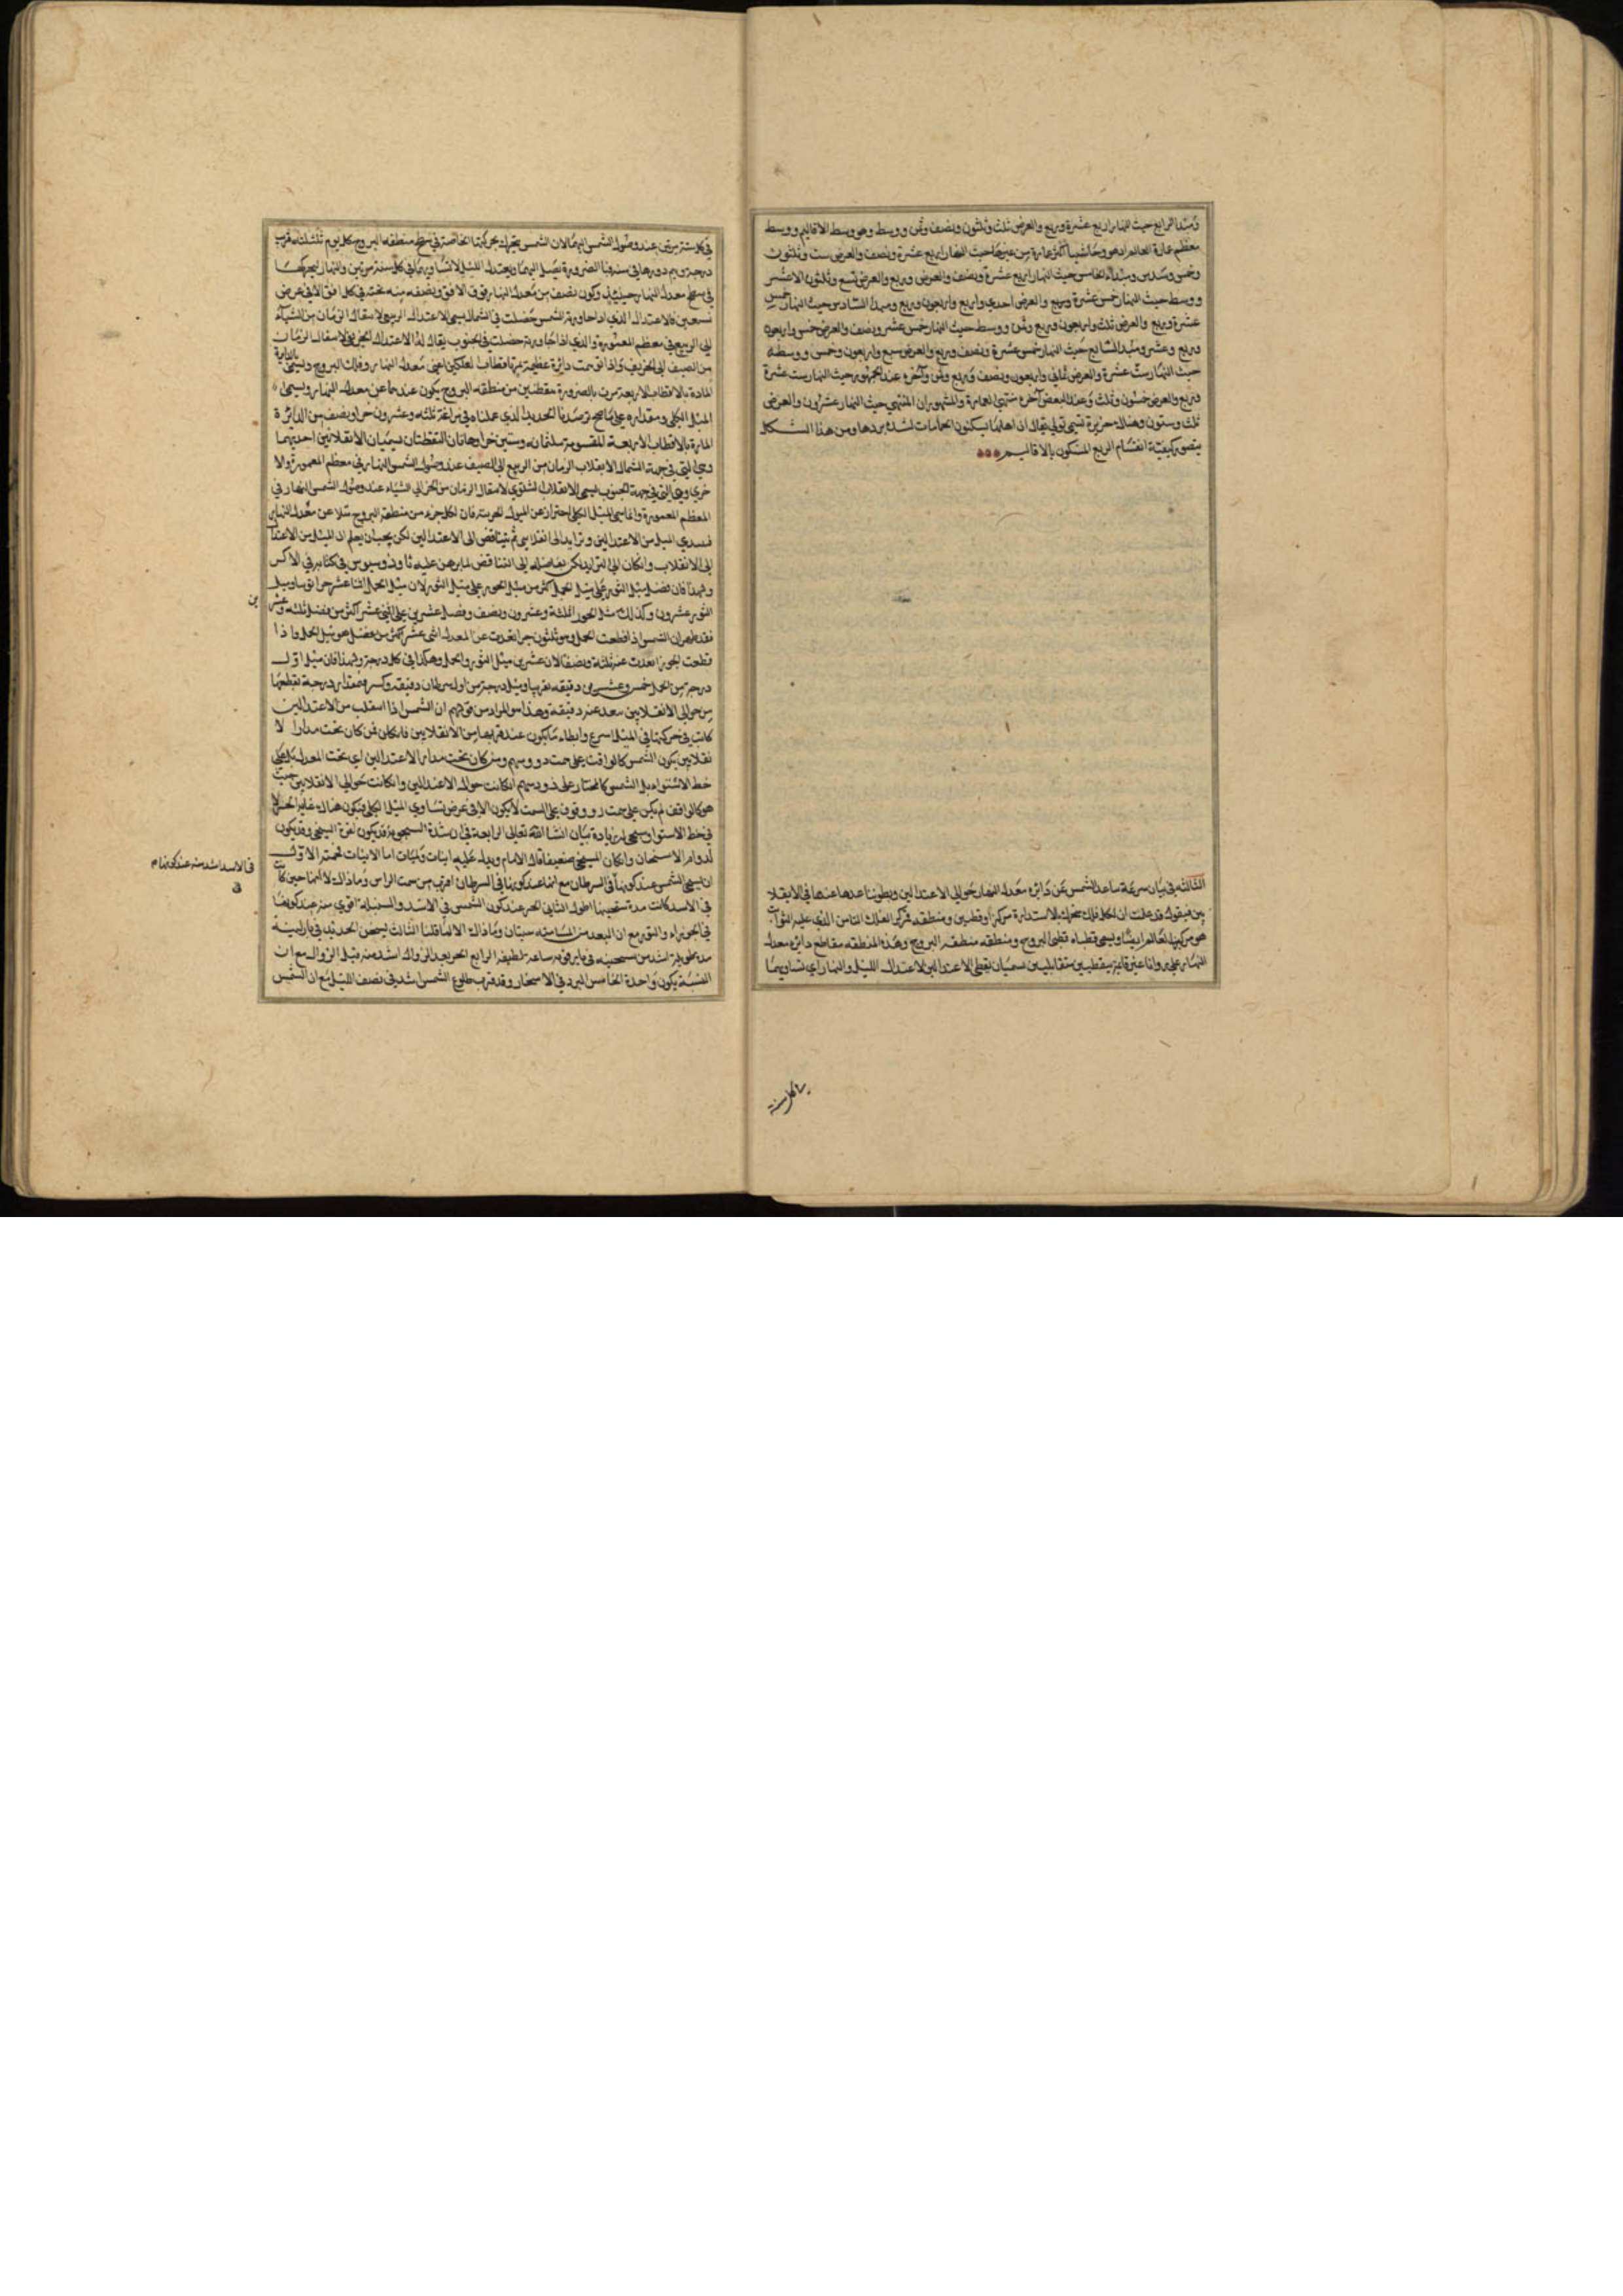 ومبدأ الرابع حيث النهار اربع عشرة وربع والعرض ثلث وثلثون ونصف وثمن ووسط وهو وسط الاقاليم ووسط
معظم عمارة العالم اذ هو وحاشيتا اكثر عمارة من غيرها حيث النهار اربع عشرة ونصف والعرض ست وثلثون
وخمس وسدس ومبدأ الخامس حيث النهار اربع عشرة ونصف والعرض وربع والعرض تسع وثلثون الا عشر
ووسط حيث النهار خمس عشرة وربع والعرض احدى واربع واربعون وربع ومبدأ السادس حيث النهار خمس
عشرة وربع والعرض ثلث واربعون وربع وثمن ووسط حيث النهار خمس عشر ونصف والعرض خمس واربعون
وربع وعشر ومبدأ السابع حيث النهار خمس عشرة ونصف وربع والعرض سبع واربعون وخمس ووسطه
حيث النهار ست عشرة والعرض ثماني واربعون ونصف وربع وثمن وآخره عند الجمهور حيث النهار ست عشرة
وربع والعرض خمسون وثلث وعند البعض آخره منتهى العمارة والمشهور ان المنتهى حيث النهار عشرون والعرض
ثلث وستون وهناك جزيرة تسمى تولى يقال ان اهلها يسكنون الحمامات لشدة بردها ومن هذا الشكل
يتصور كيفية انقسام الربع المسكون بالاقاليم
الثالثة في بيان سرعة تباعد الشمس عن دائرة معدل النهار حوالي الاعتدالين وبطؤ تباعدها عنها في الانقلا
بين فنقول قد علمت ان لكل فلك متحرك بالاستدارة مركزا وقطبين ومنطقة فمركز الفلك الثامن الذي عليه الثوابت
هو مركز العالم ايضا ويسمى قطباه قطبي البروج ومنطقته منطقة البروج وهذه المنطقة تقاطع دائرة معدل
النهار على زوايا غير قائمة بنقطتين متقابلتين تسميان نقطتي الاعتدالين لاعتدال الليل والنهار اي تساويهما
في كل سنة
في كل سنة مرتين عند وصول الشمس اليهما لان الشمس تتحرك بحركتها الخاصة في سطح منطقة البروج كل يوم ثلثلثه قريب
درجة ويتم دورها في سنة فبالضرورة تصل اليهما ويعتدل الليل لانتشاويهما في كل سنة مرتين والنهار لتحركها
في سطح معدل النهار حينئذ وكون نصف من معدل النهار فوق الافق ونصفه منه تحته في كل افق الا في عرض
تسعين فالاعتدال الذي اذا جاوزته الشمس حصلت في الشمال يسمى الاعتدال الربيعي لانتقال الزمان من الشتاء
الى الربيع في معظم المعمورة والذي اذا جاوزته حصلت في الجنوب يقال له الاعتدال الخريفي لانتقال الزمان
من الصيف الى الخريف واذا توهمت دائرة عظيمة تمر باقطاب الفلكين اعني معدل النهار وفلك البروج وتسمى
بالدايرة
المارة بالاقطاب الاربعة مرت بالضرورة بنقطتين من منطقة البروج يكون عندهما عن معدل النهار ويسمى
الميل الكلي ومقداره على ما صح برصدنا الجديد الذي عملناه في مراغة ثلثة وعشرون جزا ونصف من الدائرة
المارة بالاقطاب الاربعة المقسومة بثلثمائة وستين جزا وهاتان النقطتان تسميان الانقلابين احديهما
وهي التي في جهة الشمال الانقلاب الزمان من الربيع الى الصيف عند وصول الشمس اليها في معظم المعمورة والا
خرى وهي التي في جهة الجنوب تسمى الانقلاب الشتوي لانتقال الزمان من الخريف الى الشتاء عند وصول الشمس اليها في
المعظم المعمورة وانما سمي الميل الكلي احترازا عن الميول الجزئية فان لكل جزء من منطقة البروج ميلا عن معدل النهار
فيبتدي الميل من الاعتدالين ويتزايد الى انقلابين ثم يتناقص الى الاعتدالين لكن يجب ان يعلم ان الميل من الاعتدا
الى الانقلاب وان كان الى التزايد لكن تفاضله الى التناقص لما برهن عليه ثاوذوسيوس في كتابه في الاكر
ولهذا فان فضل ميل الثور على ميل الحمل اكثر من ميل الجوزا على ميل الثور لان ميل الحمل اثنا عشر جزا تقريبا وميل
الثور عشرون وكذلك ميل الجوزا ثلثة وعشرون ونصف وفضل عشرين على اثني عشر اكثر من فضل ثلثة وعشر
ين
فقد ظهر ان الشمس اذا قطعت الحمل وهو ثلثون جزا بعدت عن المعدل اثنى عشر اكثر من فضل هو ميل الحمل واذا
قطعت الجوزا بعدت عنه ثلثة ونصفا لان عشرين ميل الثور والحمل وهكذا في كل درجة ولهذا فان ميل اول
درجة من الحمل خمس وعشرون دقيقة تقريبا وميل درجة من اول سرطان دقيقة وكسر فمقدار درجة تقطعها
من حوالي الانقلابين تبعد عنه دقيقة وهذا هو المراد من قولهم ان الشمس اذا انتقلت من الاعتدالين
كانت في حركتها في الميل اسرع وابطاء ما يكون عند قربها من الانقلابين فامكان فمن كان تحت مدار الا
نقلابين يكون الشمس كالواقفة على سمت روسهم ومن كان تحت مدار الاعتدالين اي تحت المعدل بل على
خط الاستواء بل الشمس كالمجتاز على رؤوسهم ان كانت حول الاعتدالين وان كانت حوالي الانقلابين حيث
هو كالواقف لم يكن على سمت ر ووقوف على السمت لا يكون الا في عرض يساوي الميل الكلي فيكون هناك غاية الحر لا
في خط الاستوا وسيجي له زيادة بيان ان شا الله تعالى الرابعة في ان شدة السخونة قد يكون لقوة المسخن وقد يكون
لدوام الاسخان وان كان المسخن ضعيفا قال الامام ويدل عليه انيات ولميات اما الانيات فخمسة الاول
ان تسخن الشمس عند كونها في السرطان مع انها عند كونها في السرطان اقرب من سمت الراس وما ذاك الا لانها حين كانت
في الاسد اشد منه عند كونها م
في الاسد كانت مدة تسخينها اطول الثاني الحر عند كون الشمس في الاسد والسنبلة اقوى منه عند كونها
في الجوزاء والثور مع ان البعد من المسامتة سيان وما ذاك الا لما قلنا الثالث تسخن الحديد في نار لينة
مدة طويلة اشد من تسخينه في نار قوية ساعة لطيفة الرابع الحر بعد الزوال اشد منه قبل الزوال مع ان
النسبة يكون واحدة الخامس البرد في الاسحار وقد قرب طلوع الشمس اشد في نصف الليل مع ان الشمس